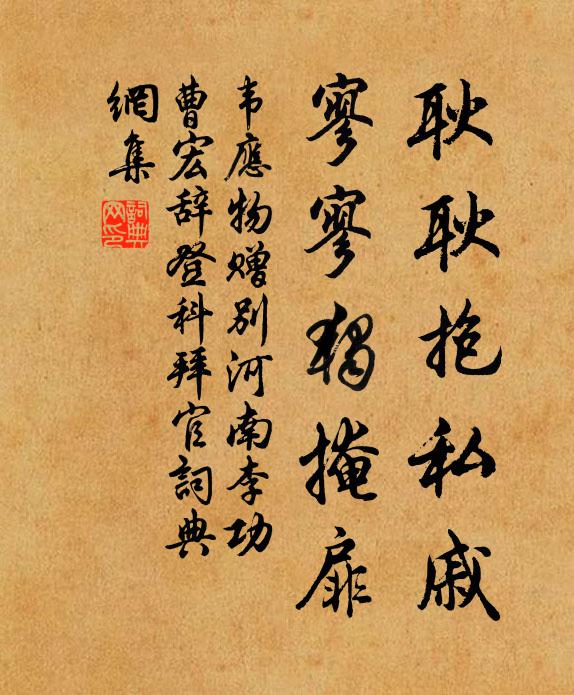 耿耿抱私戚
寥寥獨掩扉
韦應物赠别河南李功
曹宏辞登科拜官詞典
網集
詞典網印